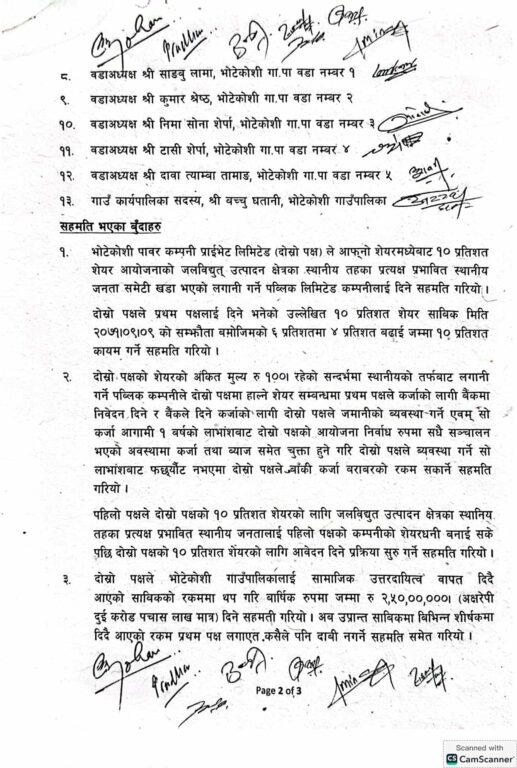 ८. वडाअध्यक्ष श्री साङबु लामा, भोटेकोशी गा.पा वडा नम्बर १
९. वडाअध्यक्ष श्री कुमार श्रेष्ठ, भोटेकोशी गा.पा वडा नम्बर २
१०. वडाअध्यक्ष श्री निमा सोना शेर्पा, भोटेकोशी गा.पा वडा नम्बर ३
११. वडाअध्यक्ष श्री टासी शेर्पा, भोटेकोशी गा.पा वडा नम्बर ४
१२. वडाअध्यक्ष श्री दावा त्याम्बा तामाङ, भोटेकोशी गा.पा वडा नम्बर ५
१३. गाउँ कार्यपालिका सदस्य, श्री बच्चु घतानी, भोटेकोशी गाउँपालिका
सहमति भएका बुँदाहरु
१. भोटेकोशी पावर कम्पनी प्राईभेट लिमिटेड (दोस्रो पक्ष) ले आफ्नो शेयरमध्येबाट १० प्रतिशत
शेयर आयोजनाको जलविद्युत् उत्पादन क्षेत्रका स्थानीय तहका प्रत्यक्ष प्रभावित स्थानीय
जनता समेटी खडा भएको लगानी गर्ने पब्लिक लिमिटेड कम्पनीलाई दिने सहमति गरियो ।
दोस्रो पक्षले प्रथम पक्षलाई दिने भनेको उल्लेखित १० प्रतिशत शेयर साबिक मिति
२०७१।०९।०९ को सम्झौता बमोजिमको ६ प्रतिशतमा ४ प्रतिशत बढाई जम्मा १० प्रतिशत
कायम गर्ने सहमति गरियो ।
२. दोस्रो पक्षको शेयरको अंकित मुल्य रु १००। रहेको सन्दर्भमा स्थानीयको तर्फबाट लगानी
गर्ने पब्लिक कम्पनीले दोस्रो पक्षमा हाल्ने शेयर सम्बन्धमा प्रथम पक्षले कर्जाको लागी बैंकमा
निवेदन दिने र बैंकले दिने कर्जाको लागी दोस्रो पक्षले जमानीको ब्यवस्था गर्ने एवम् सो
कर्जा आगामी १ बर्षको लाभांशबाट दोस्रो पक्षको आयोजना निर्वाध रुपमा सधै सञ्चालन
भएको अवस्थामा कर्जा तथा ब्याज समेत चुक्ता हुने गरि दोस्रो पक्षले ब्यवस्था गर्ने सो
लाभांशबाट फर्छ्यौट नभएमा दोस्रो पक्षले बाँकी कर्जा बराबरको रकम सकार्ने सहमति
गरियो ।
पहिलो पक्षले दोस्रो पक्षको १० प्रतिशत शेयरको लागि जलविद्युत उत्पादन क्षेत्रका स्थानिय
तहका प्रत्यक्ष प्रभावित स्थानीय जनतालाई पहिलो पक्षको कम्पनीको शेयरधनी बनाई सके
पछि दोस्रो पक्षको १० प्रतिशत शेयरको लागि आवेदन दिने प्रक्रिया सुरु गर्ने सहमति गरियो ।
३. दोस्रो पक्षले भोटेकोशी गाउँपालिकालाई सामाजिक उत्तरदायित्व वापत दिदै
आएको साविकको रकममा थप गरि बार्षिक रुपमा जम्मा रु २,५०,००,०००। (अक्षरेपी
दुई करोड पचास लाख मात्र) दिने सहमती गरियो । अब उप्रान्त साविकमा बिभिन्न शीर्षकमा
दिदै आएको रकम प्रथम पक्ष लगाएत कसैले पनि दाबी नगर्ने सहमति समेत गरियो ।
Page 2 of 3
Scanned with
CS CamScanner